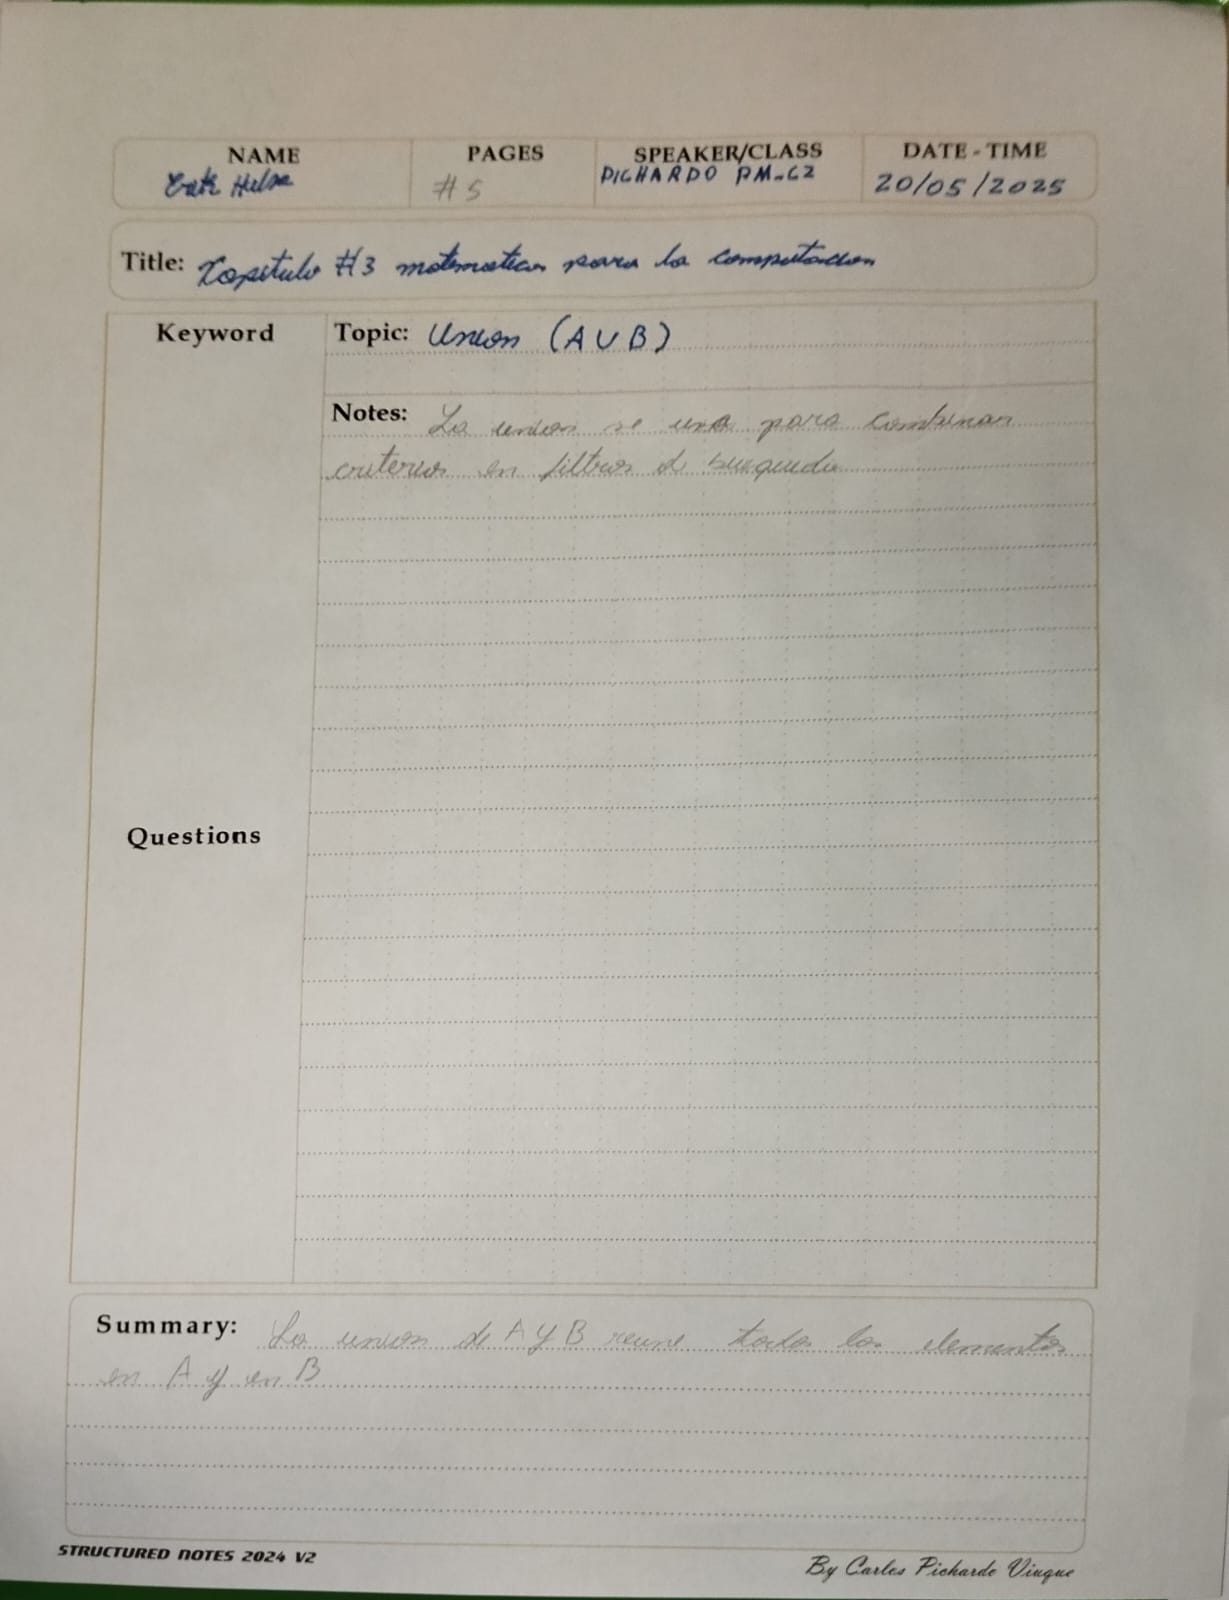 NAME PAGES SPEAKER/CLASS DATE - TIME
# 5 PICHARDO PM-C2 20/05/2025
Title: Capitulo #3 matematica para la computacion
Keyword Topic: Union (A U B)
Notes: La union se usa para combinar
criterios en filtros de busqueda
Questions
Summary: La union de A y B reune todos los elementos
en A y en B
STRUCTURED NOTES 2024 V2
By Carlos Pichardo Viuque